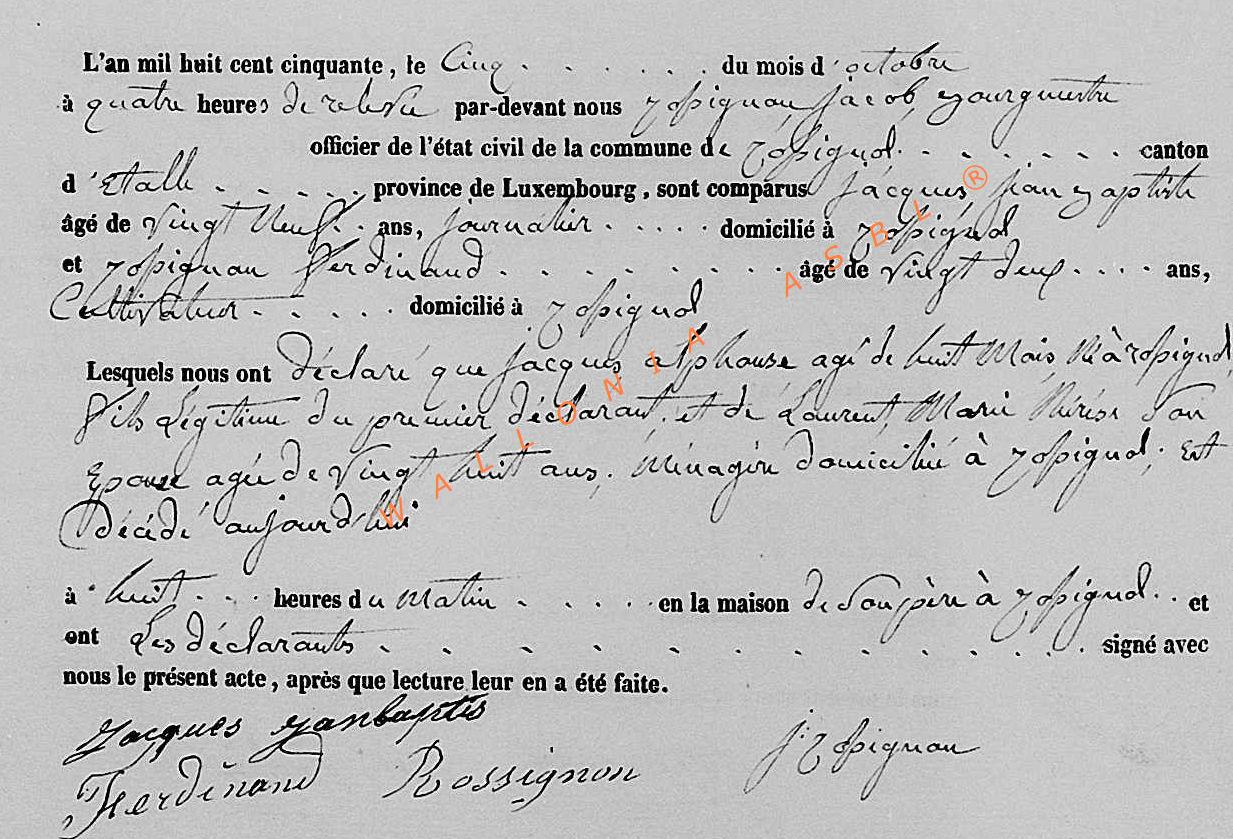 L'an mil huit cent cinquante, le Cinq . . . . . . du mois d'octobre
à quatre heures de relevée par-devant nous Rossignon, Jacob, Bourgmestre
officier de l'état civil de la commune de Rossignol . . . . . . canton
d'Etalle . . . . . province de Luxembourg, sont comparus Jacques, Jean Baptiste
âgé de vingt Neuf . . ans, journalier . . . . . domicilié à Rossignol
et Rossignon Ferdinand . . . . . . . . . âgé de vingt deux . . . . ans,
Cultivateur . . . . . domicilié à Rossignol
Lesquels nous ont déclaré que Jacques alphonse agé de huit Mois, Né à Rossignol,
fils Légitime du premier déclarant, et de Laurent, Marie Thérèse Son
Epouse agée de vingt huit ans, Ménagère domiciliée à Rossignol, Est
Décédé aujourd'hui
à huit . . . heures du Matin . . . . . en la maison de Son père à Rossignol . . et
ont Les déclarants . . . . . . . . . . . . signé avec
nous le présent acte, après que lecture leur en a été faite.
Jacques Janbaptis
Ferdinand Rossignon
J: Rossignon
WALLONIA ASBL ®